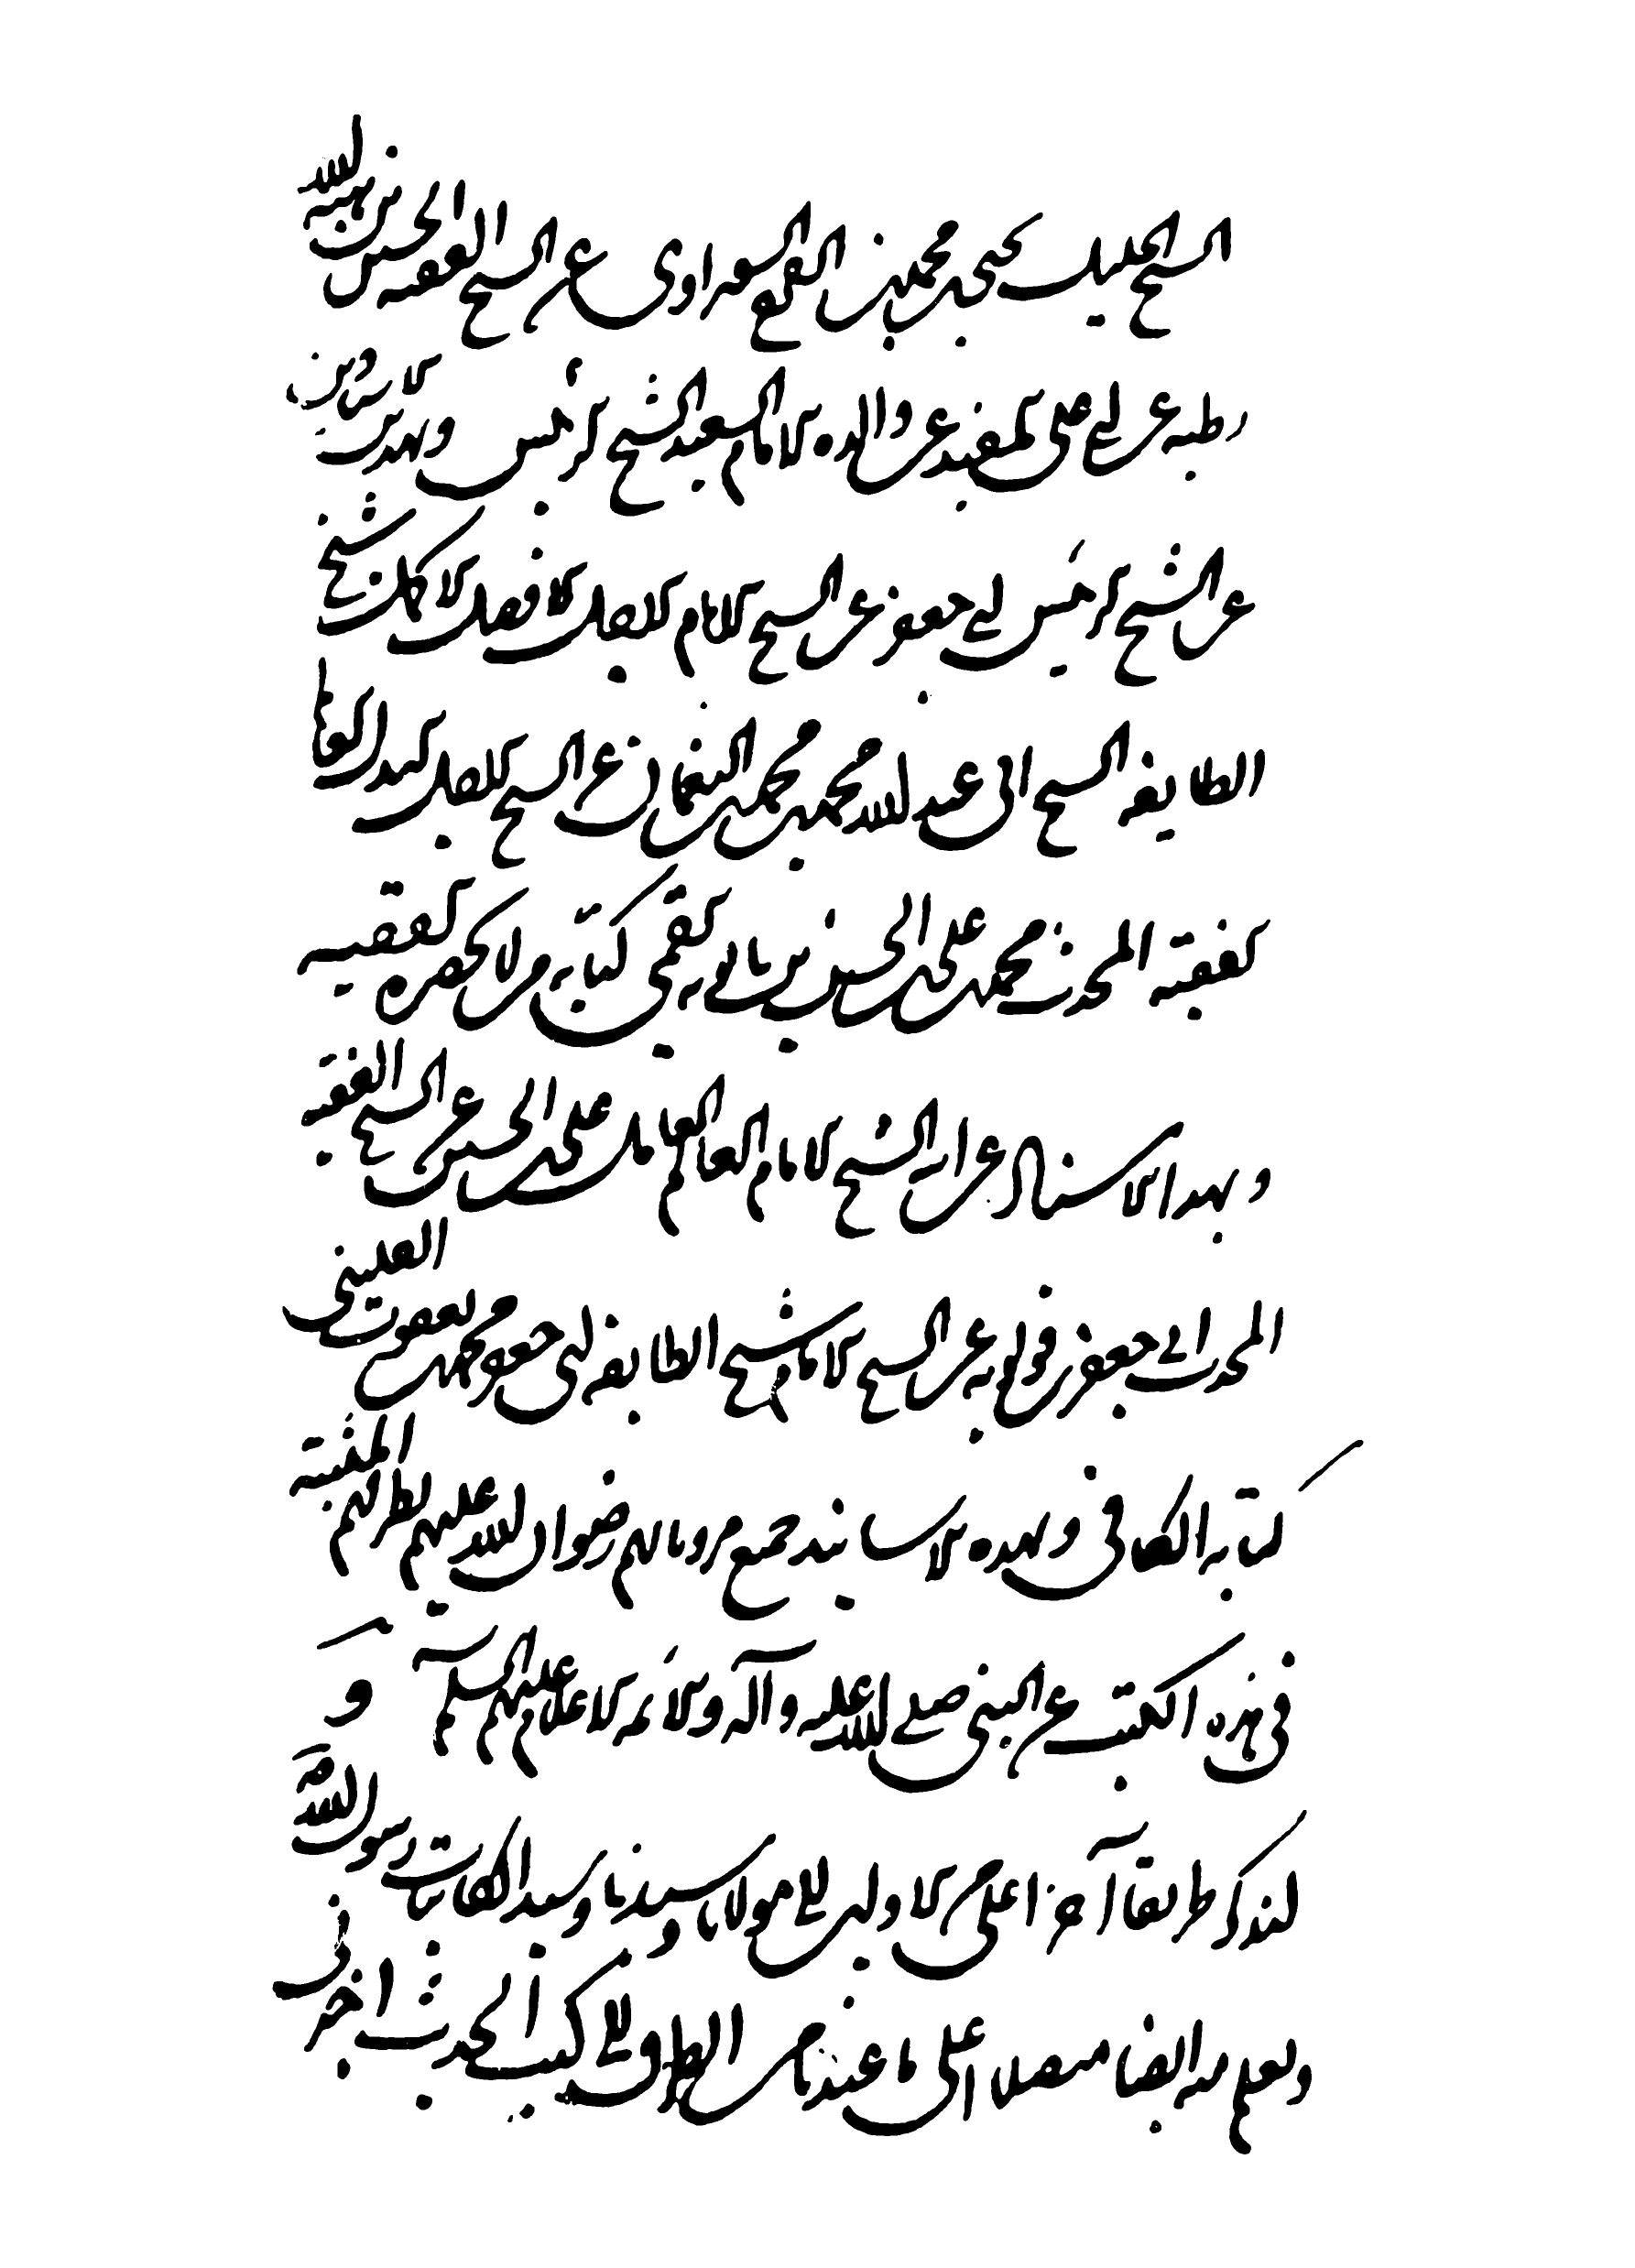 الشيخ الجليل يحيى بن محمد بن الفرج السوراوى عن الشيخ الفقيه الحسن بن هبة الله
رطبه عن ابى على المفيد عن والده الامام السعيد الشيخ الرئيس وبهذين
عن الشيخ الرئيس ابى جعفر عن الشيخ الامام الافضل الاكمل شيخ
الطايفة الشيخ ابى عبد الله محمد بن محمد بن النعمان عن الشيخ الفاضل
الفقيه المحدث محمد بن على بن الحسين بن بابويه القمى كتابه من لا يحضره الفقيه
و بهذا الاسناد عن الشيخ الامام العالم العامل على بن الحسين عن الشيخ الفقيه
المحدث ابى جعفر بن قولويه عن الشيخ الامام شيخ الطايفة ابى جعفر محمد بن يعقوب الكلينى
كتابه الكافى و بهذه الاسانيد جميع مروياتهم رضوان الله عليهم بطرقهم المثبتة
فى هذه الكتب عن النبى صلى الله عليه وآله والائمة الاعلام عليهم السلام و
لنذكر طريقا آخر اعلى من الاول الى مولانا وسيدنا وسيد الكائنات رسول الله
و يعلم منه ايضا مفصلا اعلى ما عندنا من الطرق الى كتب الحديث اخبرنى